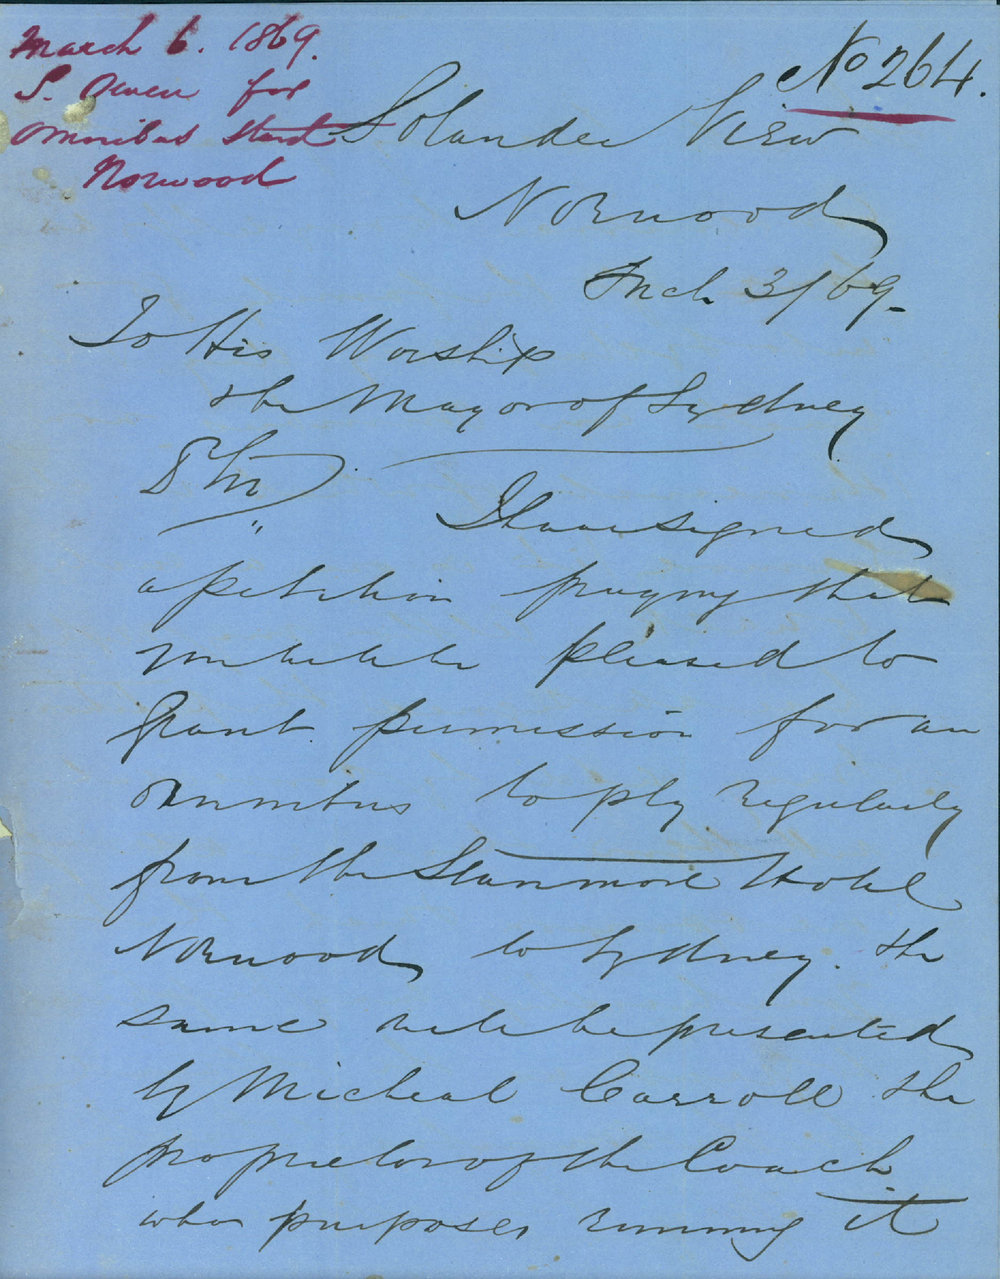 March 6. 1869.
S. Owen for
Omnibus Stand
Norwood
No 264.
Solander View
Norwood
Mch 3/69-
To His Worship
the Mayor of Sydney
Sir
I have signed
a petition praying that
you will be pleased to
grant permission for an
omnibus to ply regularly
from the Stanmore Hotel
Norwood to Sydney. The
same will be presented
by Micheal Carroll the
proprietor of the Coach
who purposes running it